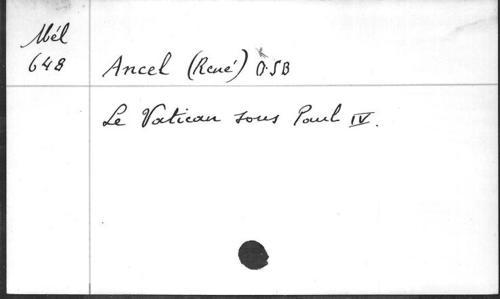 Mél
648
Ancel (René) O.S.B
Le Vatican sous Paul IV.